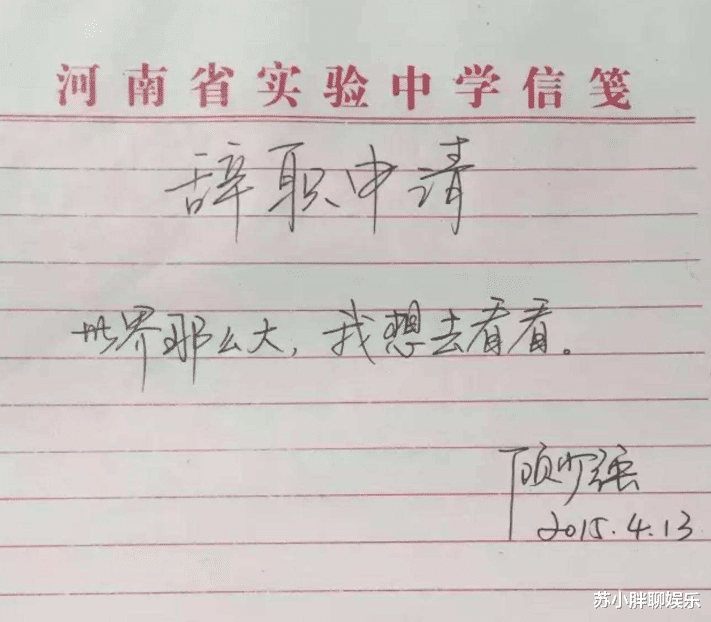 河南省实验中学信笺
辞职申请
世界那么大，我想去看看。
顾少强
2015.4.13
苏小胖聊娱乐